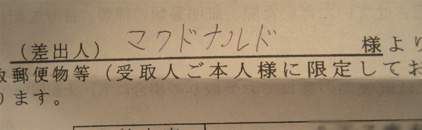 (差出人) マクドナルド 様より
郵便物等(受取人ご本人様に限定してお
ります。